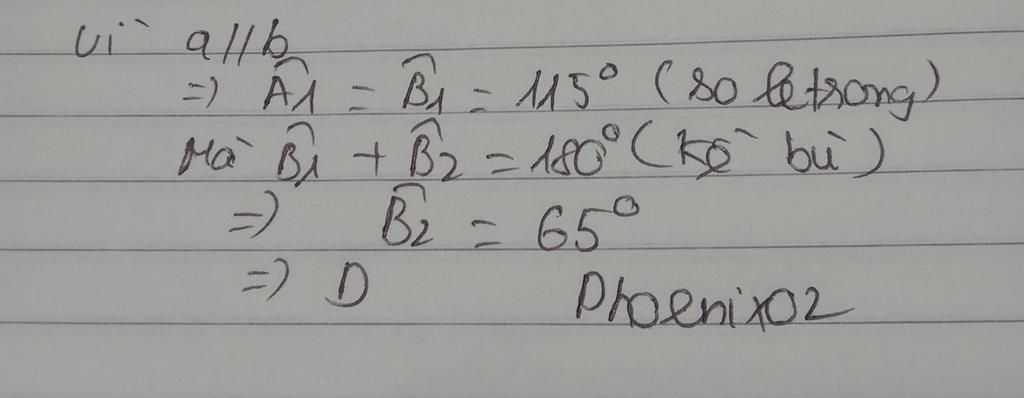 Vì a//b
=> Â1 = B̂1 = 115° (so le trong)
Mà B̂1 + B̂2 = 180° (kề bù)
=> B̂2 = 65°
=> D
Phoenix02